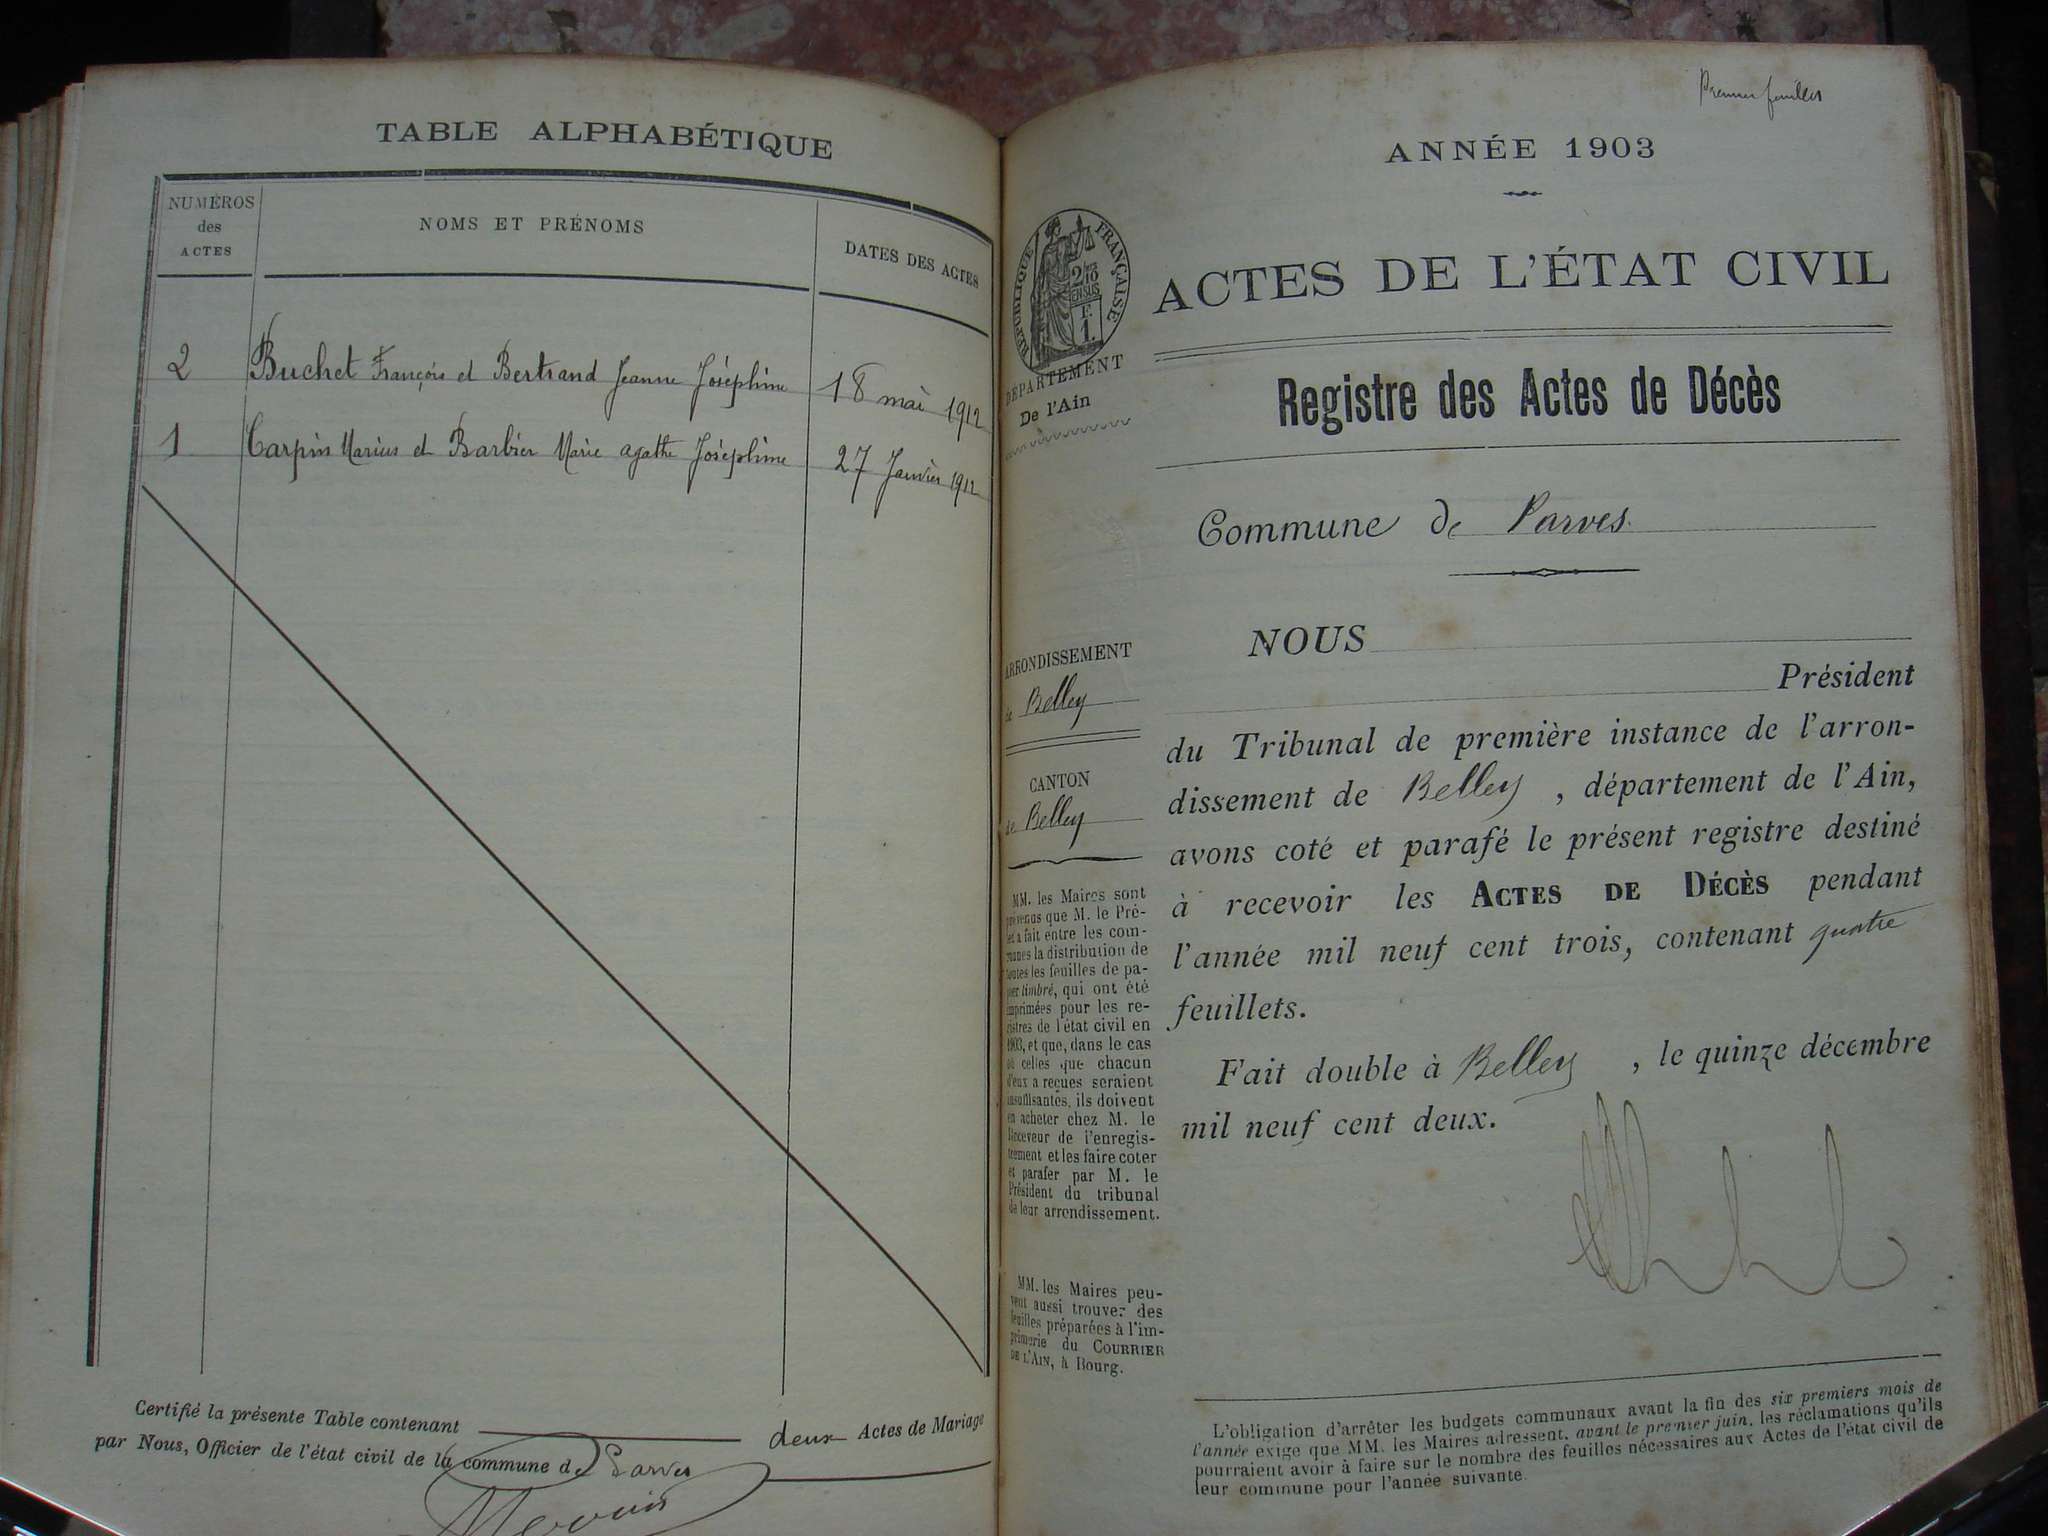 TABLE ALPHABÉTIQUE
NUMÉROS
des
ACTES
NOMS ET PRÉNOMS
DATES DES ACTES
2 Buchet François et Bertrand Jeanne Joséphine 18 mai 1912
1 Carpin Marius et Barbier Marie agathe Joséphine 27 Janvier 1912
Certifié la présente Table contenant deux Actes de Mariage
par Nous, Officier de l'état civil de la commune de Parves
Premier feuillet
ANNÉE 1903
RÉPUBLIQUE FRANÇAISE
ACTES DE L'ÉTAT CIVIL
DÉPARTEMENT
De l'Ain
Registre des Actes de Décès
Commune de Parves.
ARRONDISSEMENT
de Belley
CANTON
de Belley
MM. les Maires sont
prévenus que M. le Pré-
fet a fait entre les com-
munes la distribution de
toutes les feuilles de pa-
pier timbré, qui ont été
imprimées pour les re-
gistres de l'état civil en
1903, et que, dans le cas
où celles que chacun
d'eux a reçues seraient
insuffisantes, ils doivent
en acheter chez M. le
Receveur de l'enregis-
trement et les faire coter
et parafer par M. le
Président du tribunal
de leur arrondissement.
MM. les Maires peu-
vent aussi trouver des
feuilles préparées à l'im-
primerie du COURRIER
DE L'AIN, à Bourg.
NOUS
Président
du Tribunal de première instance de l'arron-
dissement de Belley, département de l'Ain,
avons coté et parafé le présent registre destiné
à recevoir les ACTES DE DÉCÈS pendant
l'année mil neuf cent trois, contenant quatre
feuillets.
Fait double à Belley, le quinze décembre
mil neuf cent deux.
L'obligation d'arrêter les budgets communaux avant la fin des six premiers mois de
l'année exige que MM. les Maires adressent, avant le premier juin, les réclamations qu'ils
pourraient avoir à faire sur le nombre des feuilles nécessaires aux Actes de l'état civil de
leur commune pour l'année suivante.